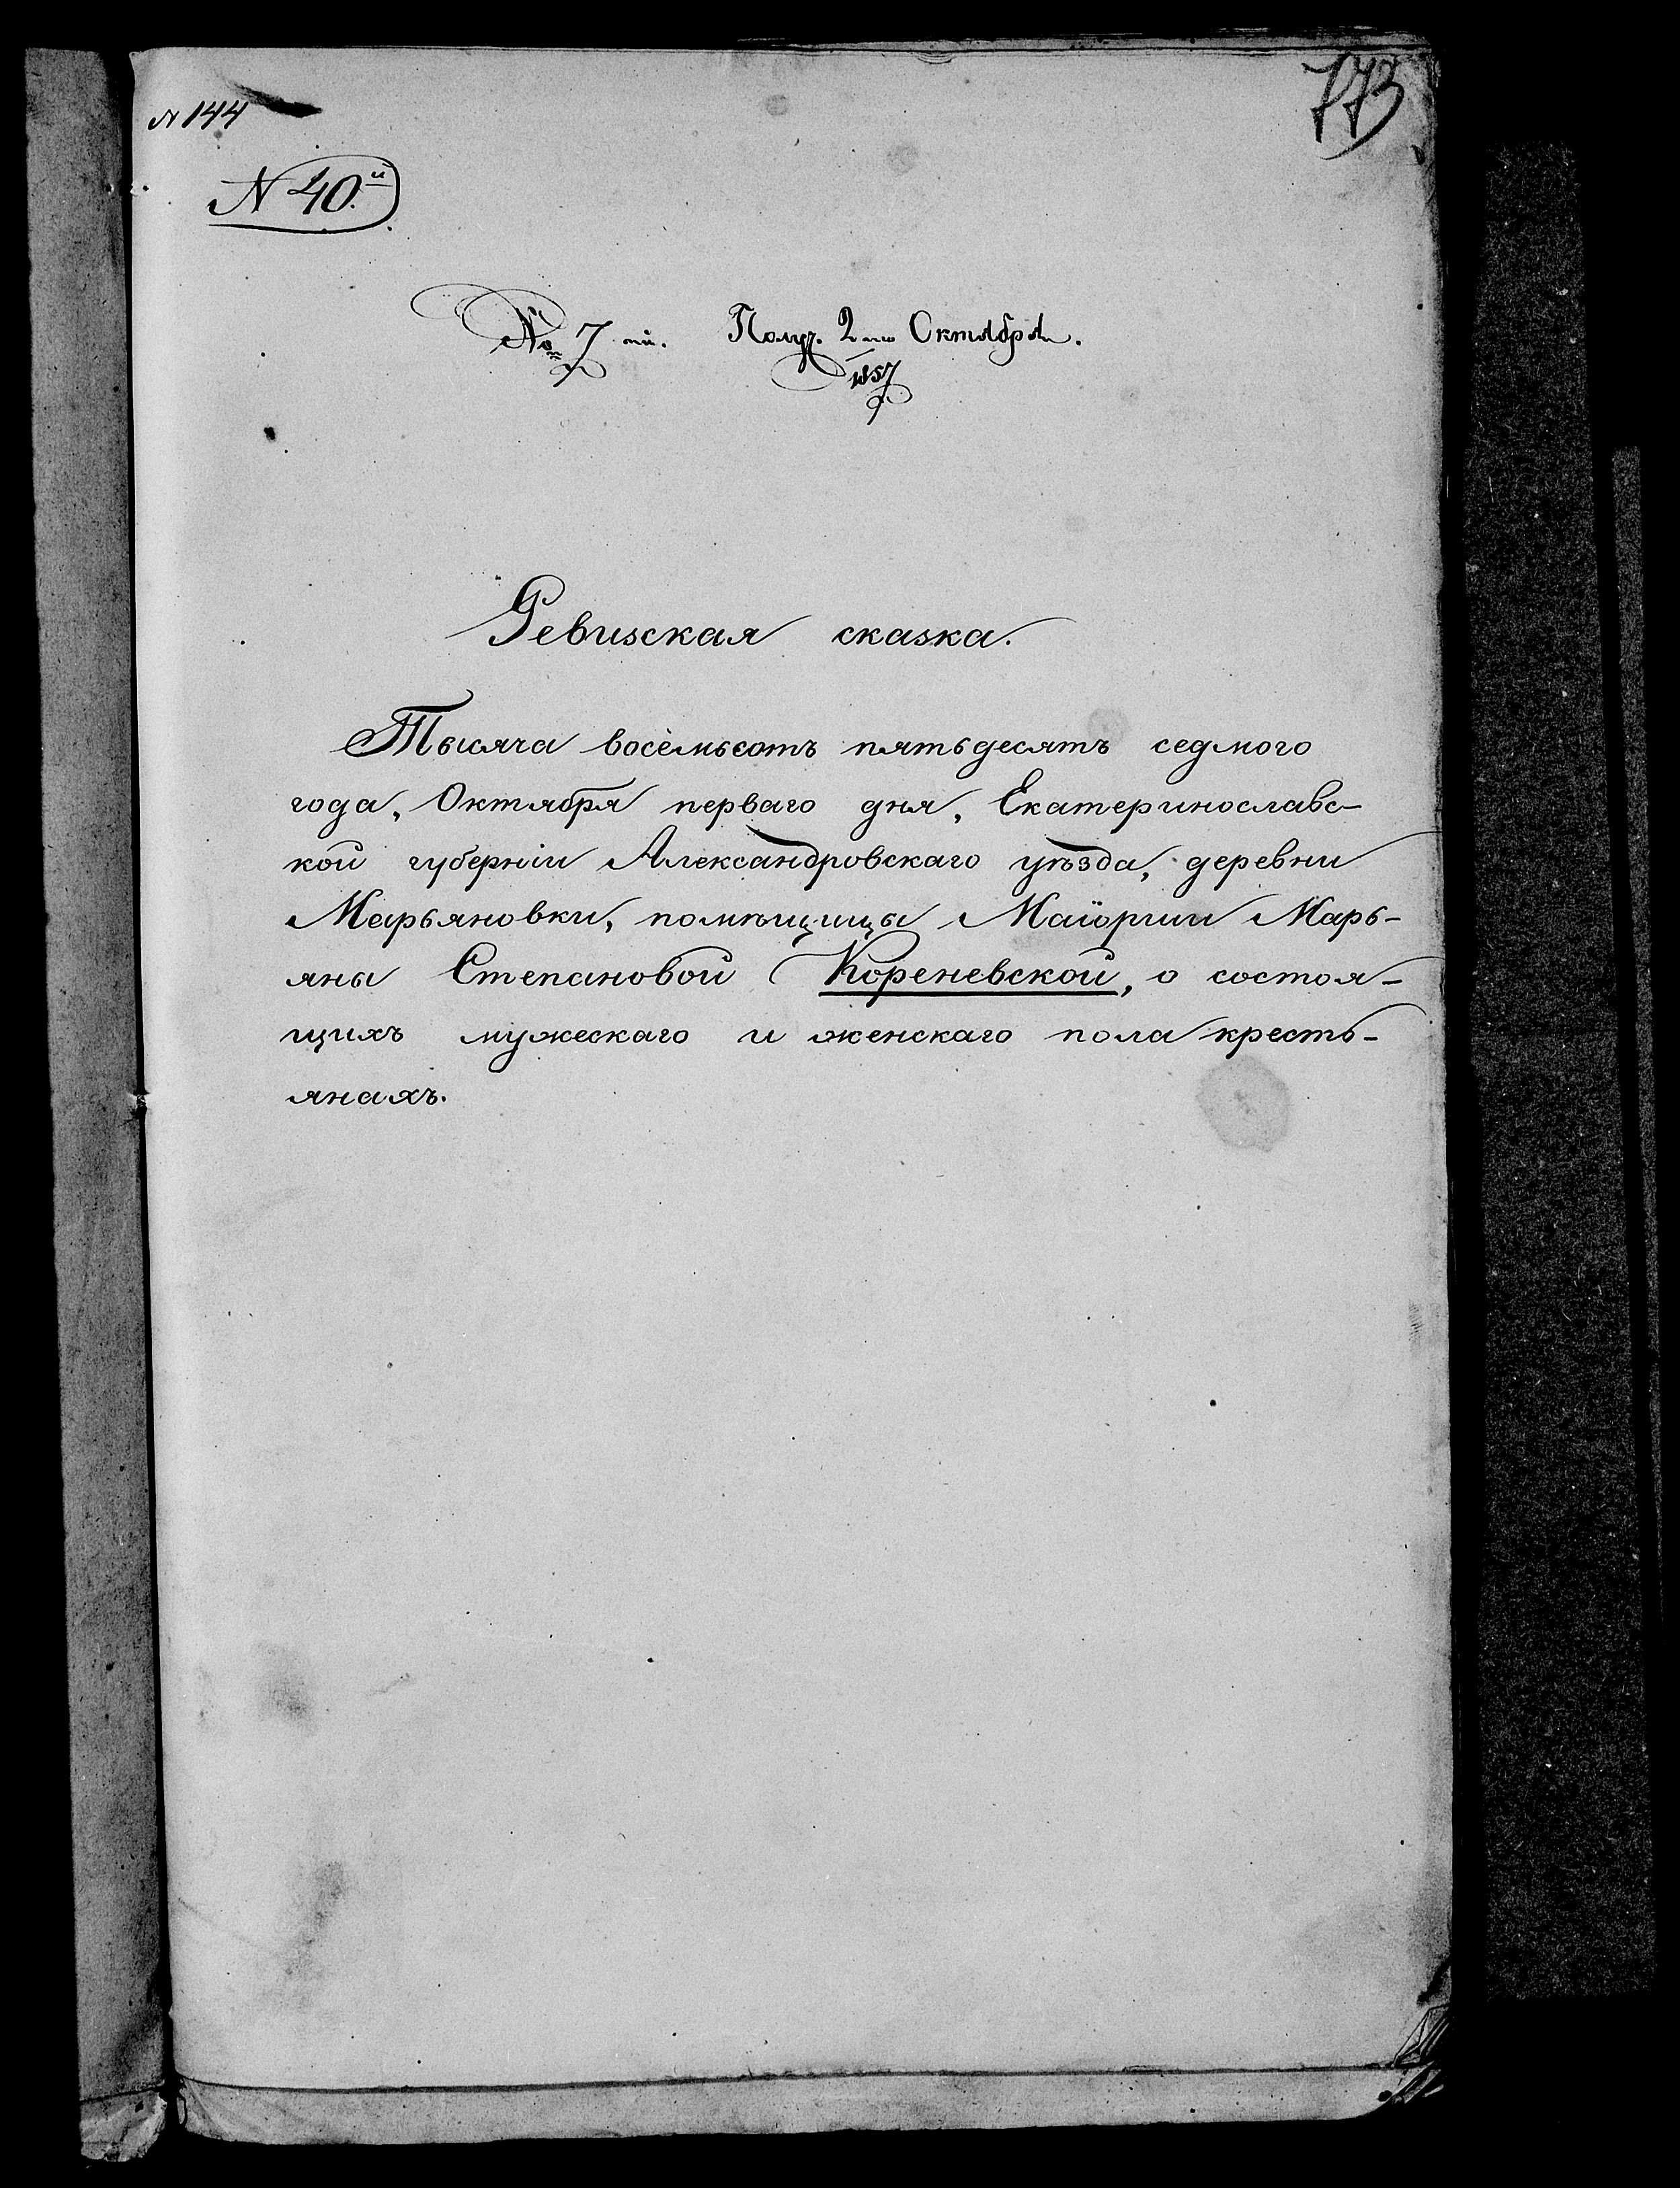 N 144
773
N 40.й
№ 7 й. Получ. 2го Октября.
1857
Ревизская сказка.
Тысяча восемьсотъ пятьдесятъ седмого
года, Октября перваго дня, Екатеринославс-
кой губерніи Александровскаго уѣзда, деревни
Марьяновки, помѣщицы Маіорши Марь-
яны Степановой Кореневской, о состоя-
щихъ мужескаго и женскаго пола кресть-
янахъ.